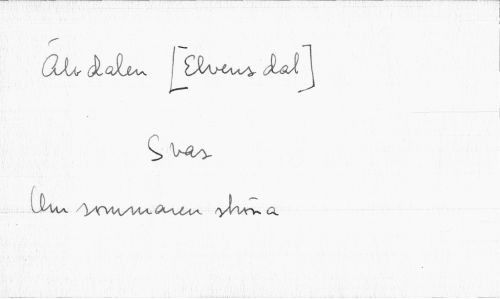 Älvdalen [Elvens dal]
Svar
Um sommaren sköna